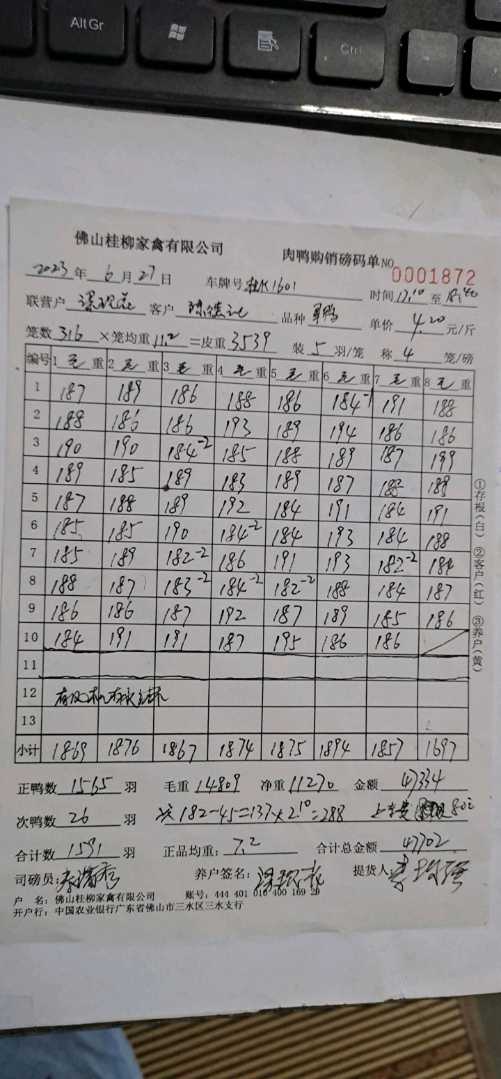 Alt Gr
Ctrl
佛山桂柳家禽有限公司 肉鸭购销磅码单 NO 0001872
2023 年 6 月 27 日 车牌号 1601 时间 至
联营户 客户 品种 单价 4.20 元/斤
笼数 316 ×笼均重 11.2 =皮重 3539 装 5 羽/笼 称 4 笼/磅
编号 1 毛 重 2 毛 重 3 毛 重 4 毛 重 5 毛 重 6 毛 重 7 毛 重 8 毛 重
1 187 189 186 188 186 184-1 191 188
2 188 186 186 193 189 194 186 186
3 190 190 184-2 185 188 189 187 199
4 189 185 189 183 189 187 188 189
5 187 188 189 192 184 191 184 191
6 185 185 190 184-2 184 193 184 188
7 185 189 182-2 186 191 193 182-2 184
8 188 187 183-2 184-2 182-2 188 184 187
9 186 186 187 192 187 189 185 186
10 184 191 191 187 195 186 186
11
12
13
小计 1869 1876 1867 1874 1875 1894 1857 1697
①存根(白) ②客户(红) ③养户(黄)
正鸭数 1565 羽 毛重 14809 净重 11270 金额 47334
次鸭数 26 羽 次 182-45=137×2.10=288
合计数 1591 羽 正品均重: 7.2 合计总金额 47702
司磅员: 养户签名: 提货人
户 名: 佛山桂柳家禽有限公司 账号: 444 401 010 400 169 29
开户行: 中国农业银行广东省佛山市三水区三水支行